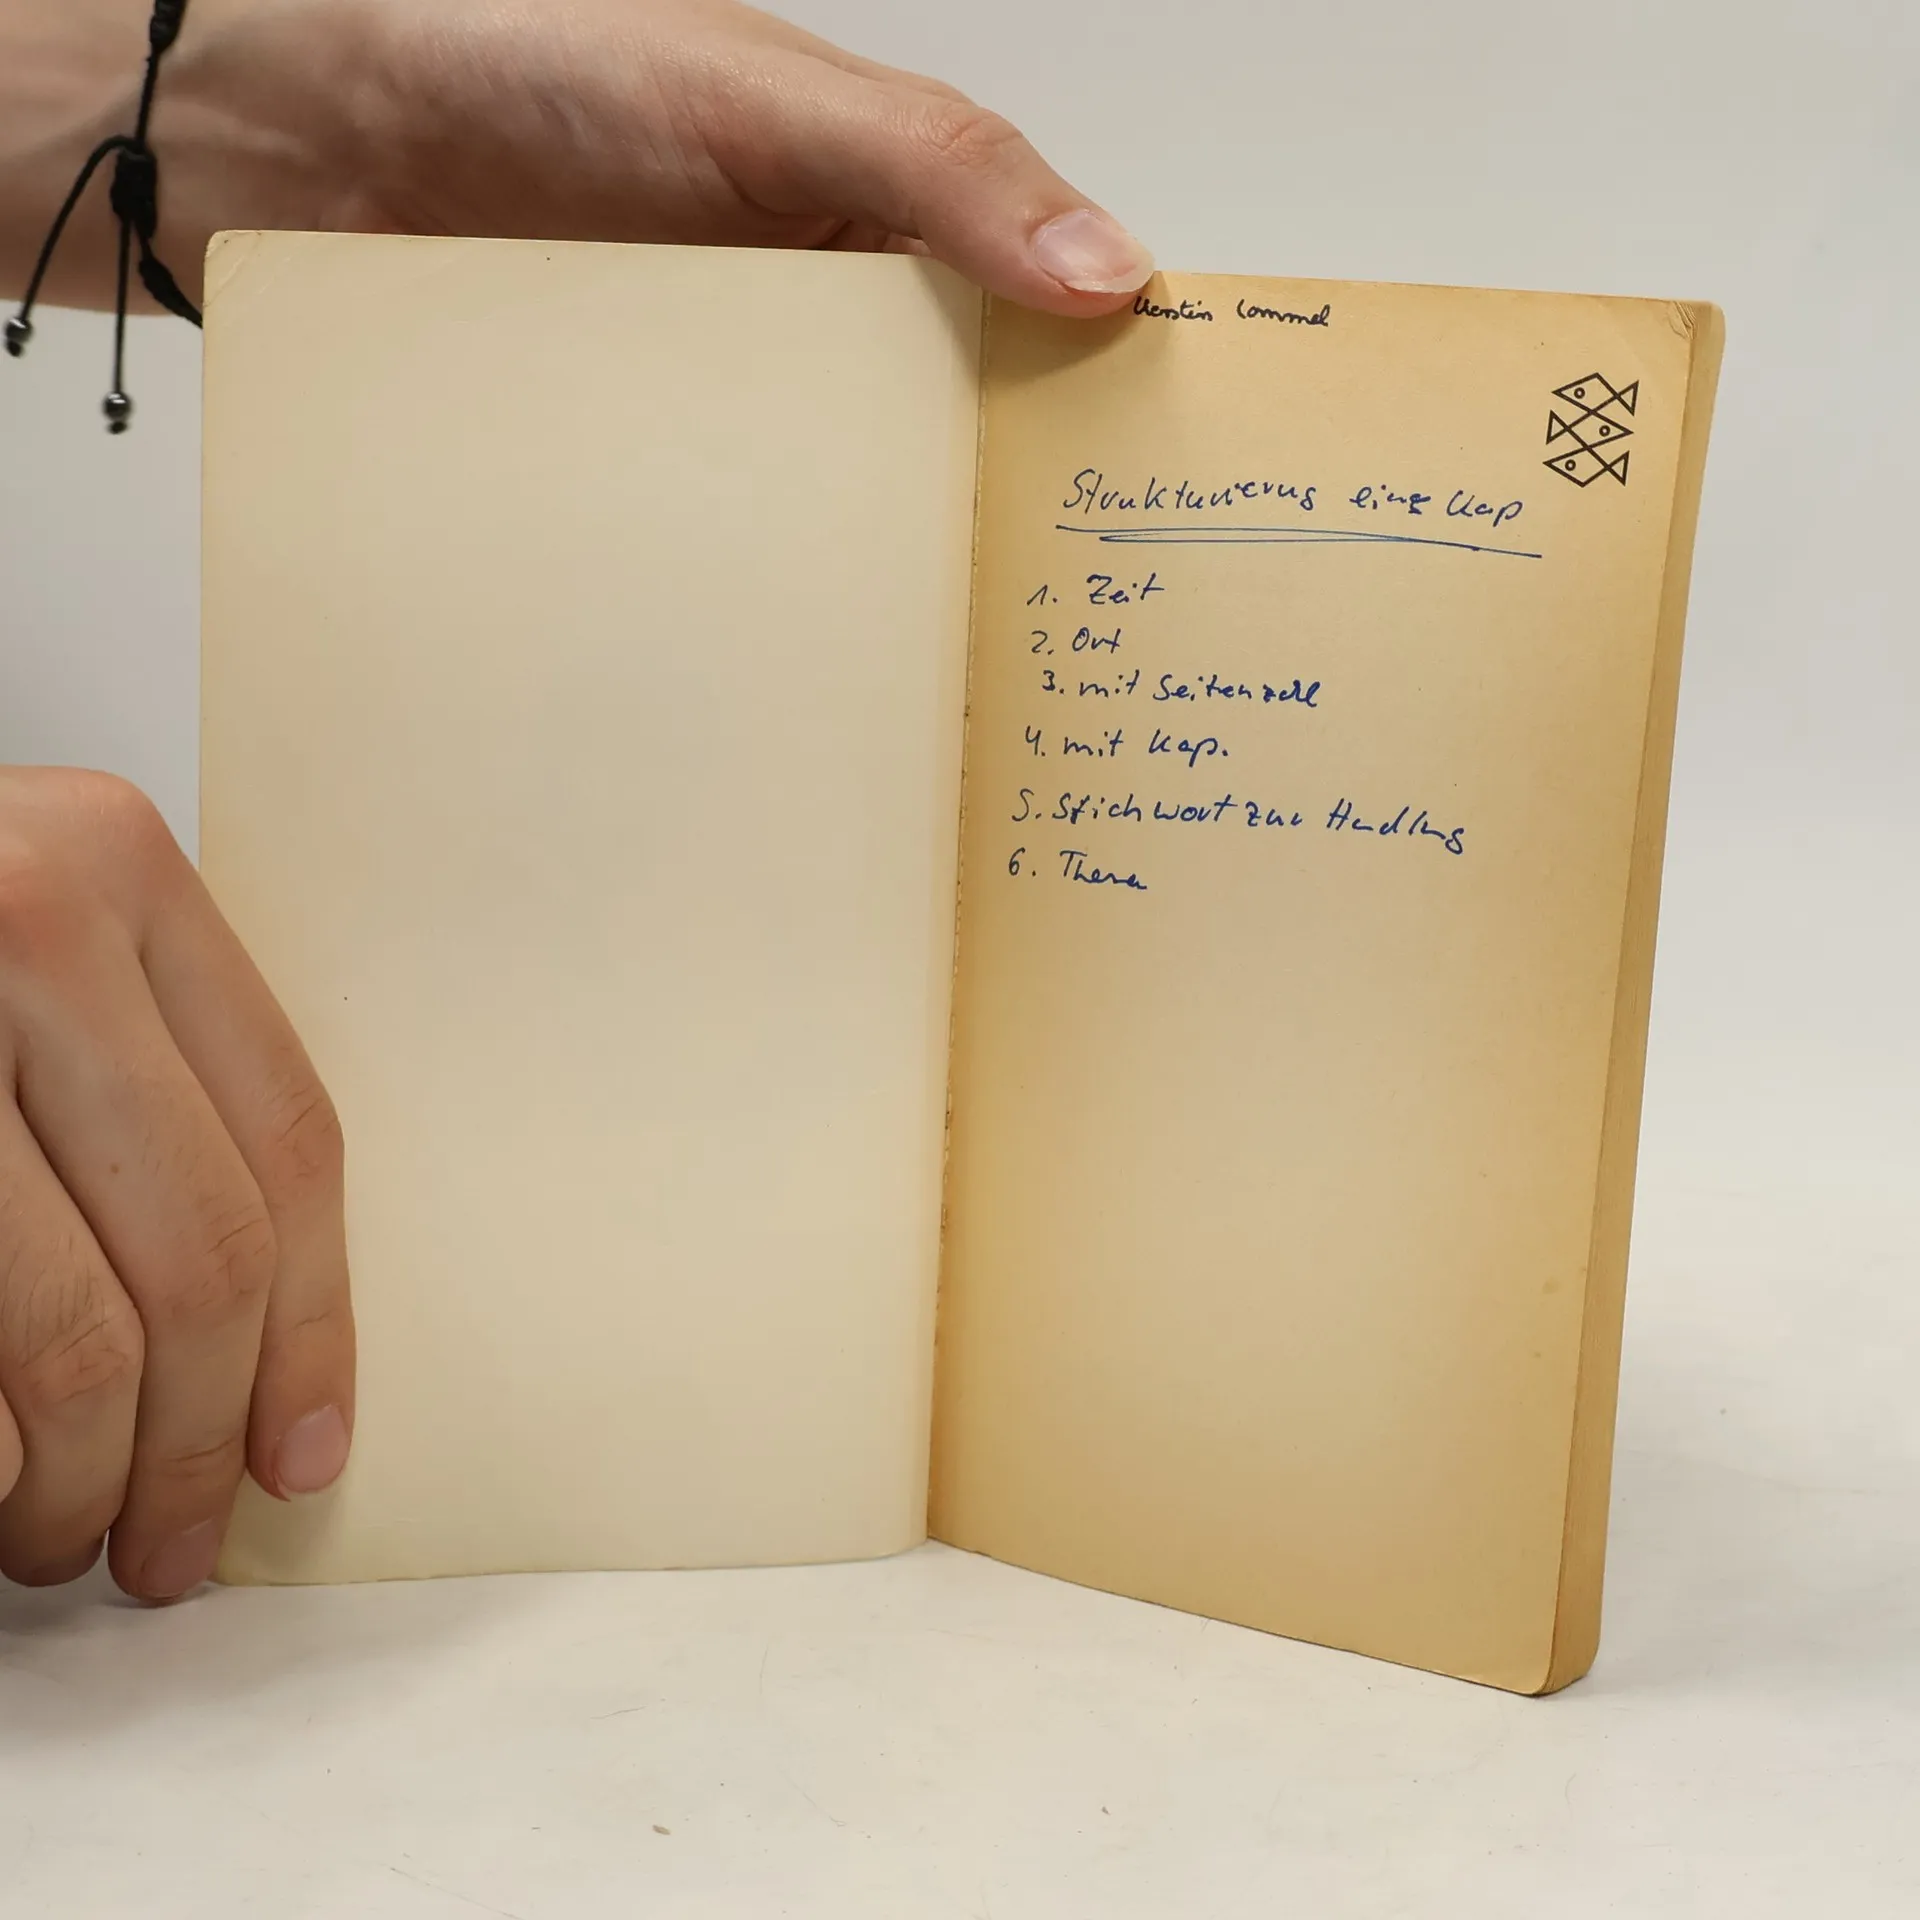 Kerstin Lommel
Strukturierung eines Kap
1. Zeit
2. Ort
3. mit Seitenzahl
4. mit Kap.
5. Stichwort zur Handlung
6. Thema